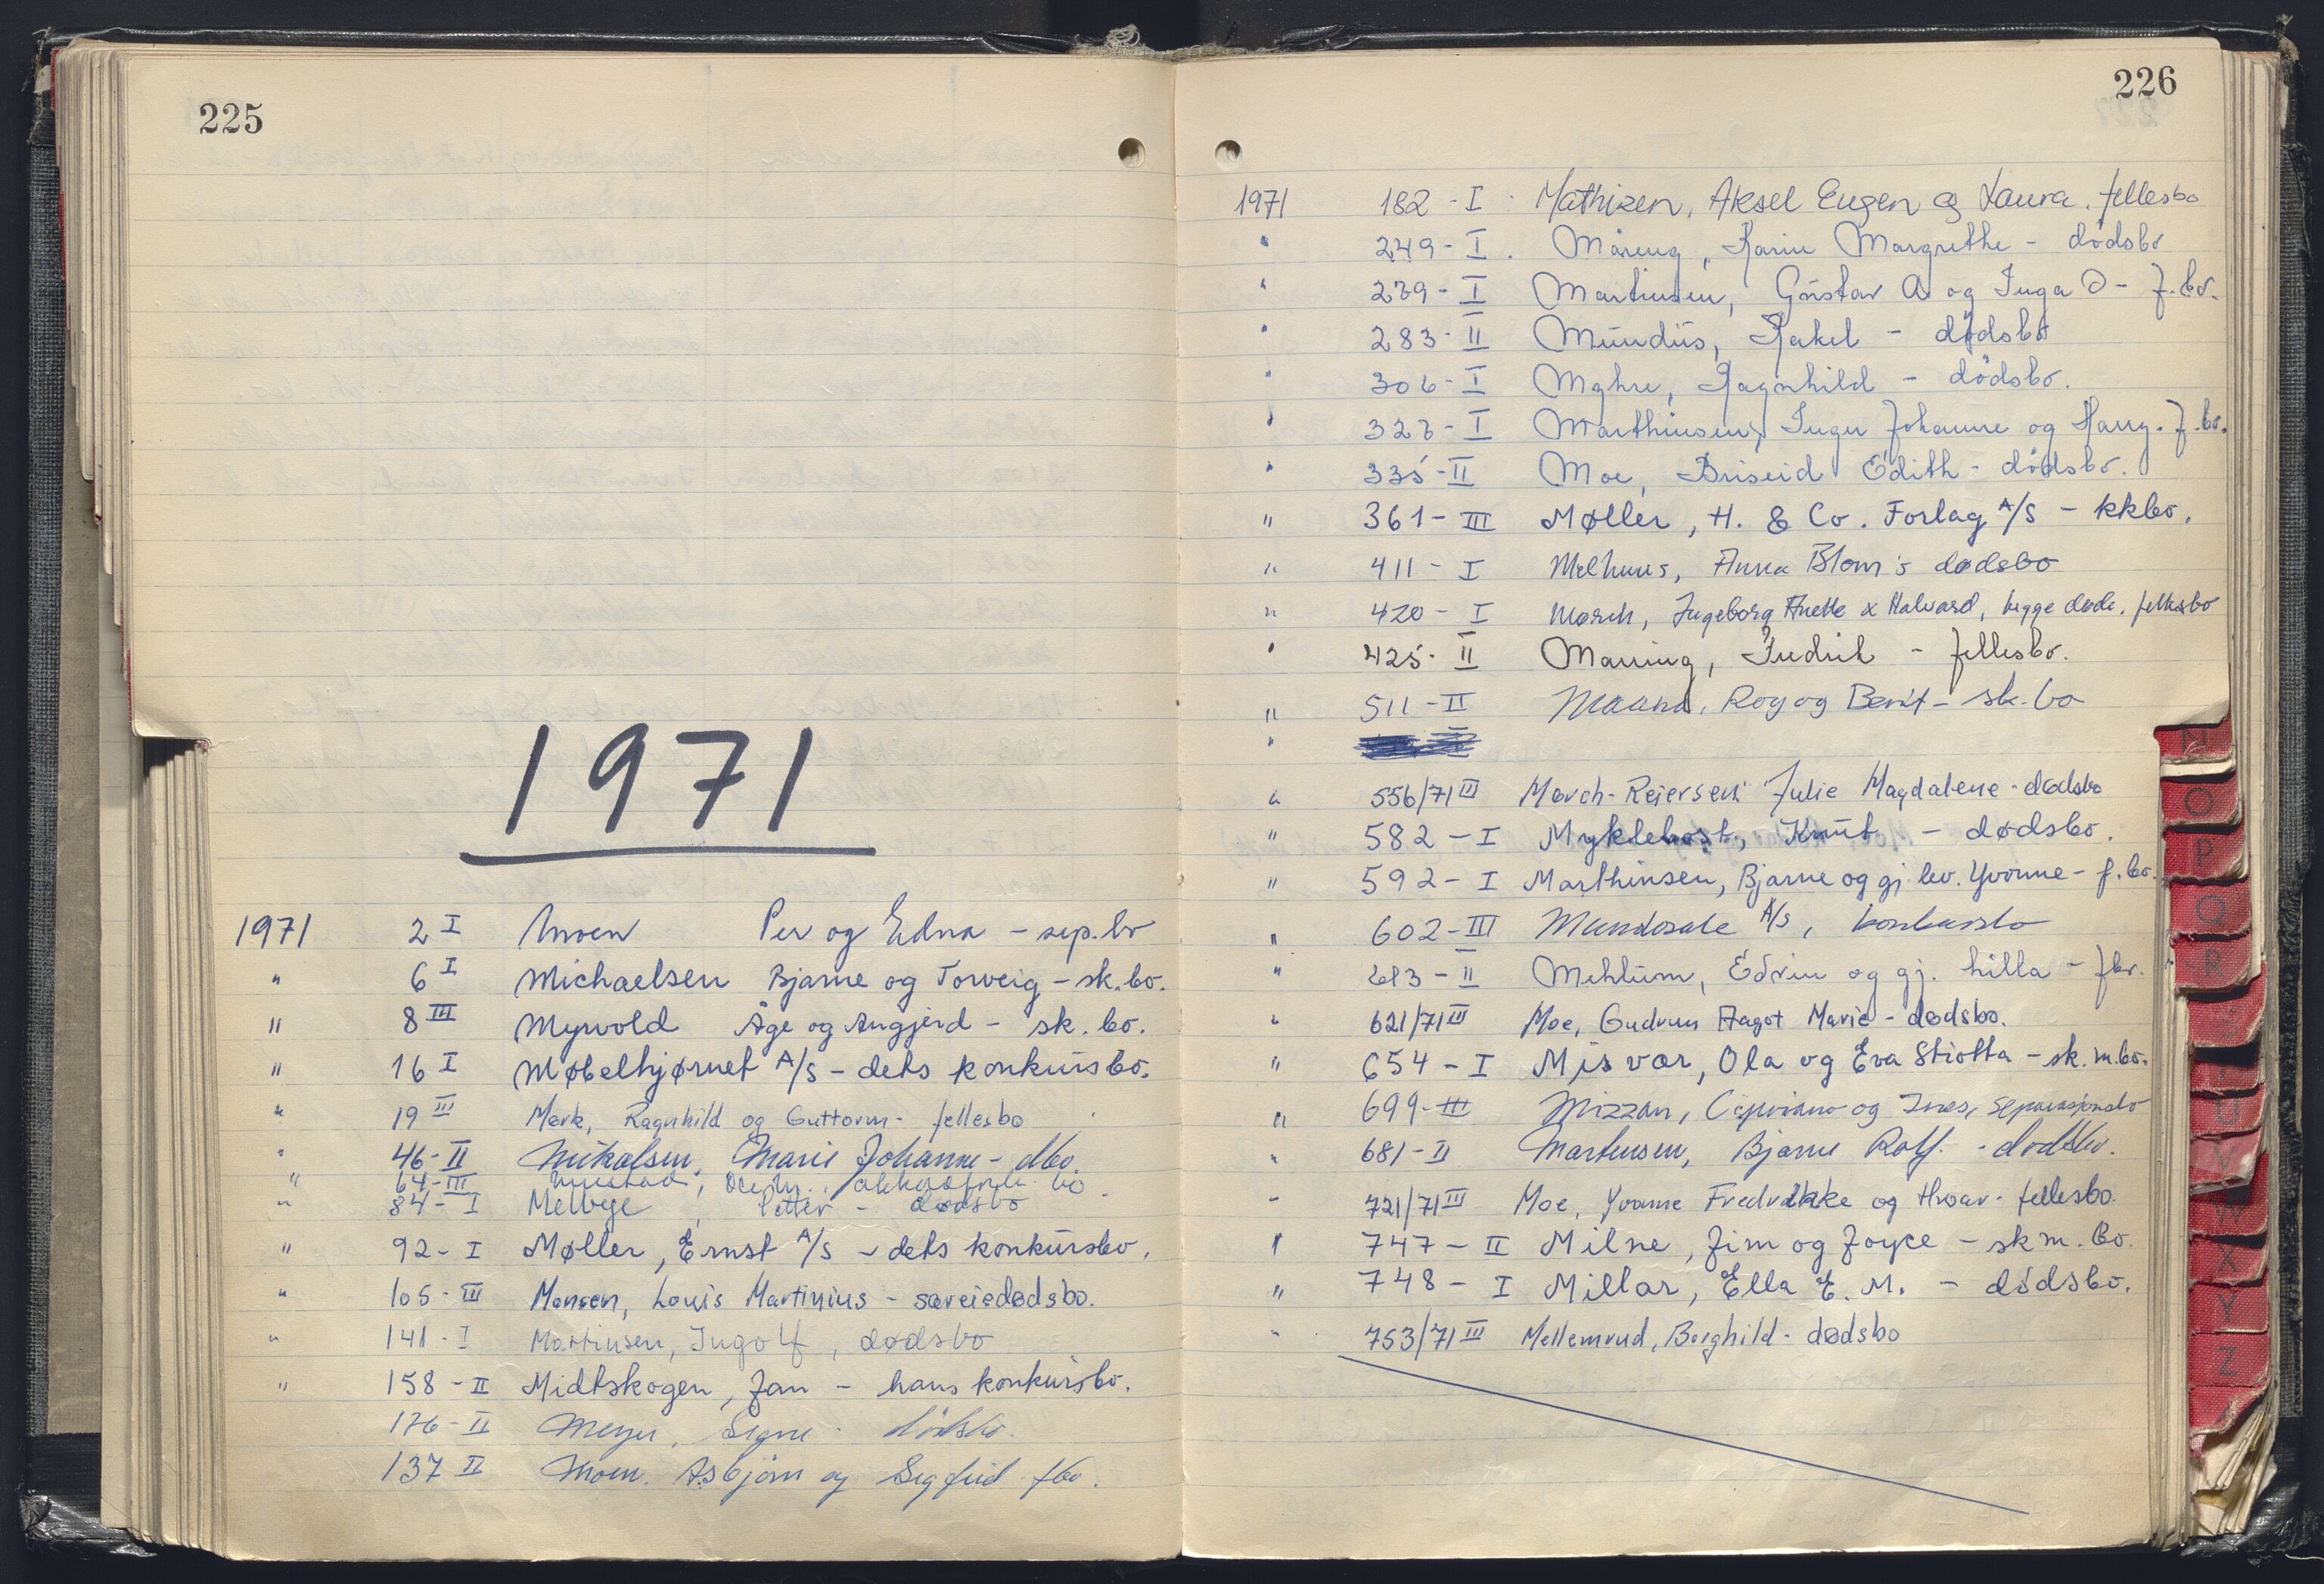 225
1971
1971 2 I Moen Per og Edna - sep.bo
" 6 I Michaelsen Bjarne og Torveig - sk.bo.
" 8 III Myrvold Åge og Angjerd - sk. bo.
" 16 I Møbelhjørnet A/S - dets konkursbo.
" 19 III Mørk, Ragnhild og Guttorm - fellesbo
" 46-II Mikalsen, Marie Johanne - dbo.
" 64-III bo
" 84-I Melbye, Petter - dødsbo
" 92-I Møller, Ernst A/S - dets konkursbo.
" 105-III Monsen, Louis Martinius - særeiedødsbo.
" 141-I Martinsen, Ingolf, dødsbo
" 158-II Midtskogen, Jan - hans konkursbo.
176-II Meyer, Signe - dødsbo.
137 II Moen. Asbjørn og Sigfrid fbo.
226
1971 182-I: Mathisen, Aksel Eugen og Laura. fellesbo
" 249-I. Karin Margrethe - dødsbo
" 279-I Martinsen, Gustav A og Inga O - f.bo.
" 283-II Mundus, Rakel - dødsbo
" 306-I Myhre, Ragnhild - dødsbo.
" 323-I Marthinsen, Inger Johanne og Harry. f.bo.
" 335-II Moe, Briseid Edith - dødsbo.
" 361-III Møller, H. & Co. Forlag A/S - kkbo.
" 411-I Melhuus, Anna Blom's dødsbo
" 420-I Mørch, Ingeborg Anette & Halvard, begge døde, fellesbo
" 425-II Manning, Fredrik - fellesbo.
" 511-II Maana, Roy og Berit - sk.bo
"
" 556/71 II Mørch-Reiersen Julie Magdalene - dødsbo
" 582-I Myklebost, Knut - dødsbo.
" 592-I Marthinsen, Bjarne og gj.lev. Yvonne - f.bo.
" 602-III Mundosale A/S, konkursbo
" 613-II Mehlum, Edvin og gj. hilla - fbo.
" 621/71 III Moe, Gudrun Aagot Marie - dødsbo.
" 654-I Misvær, Ola og Eva Stiotta - sk.m.bo.
" 699-III Mizzan, Cipriano og Ines, separasjonsbo
" 681-II Martinsen, Bjarne Rolf. - dødsbo.
" 721/71 III Moe, Yvonne Fredrikke og Hroar - fellesbo.
" 747-II Milne, Jim og Joyce - skm.bo.
" 748-I Millar, Ella E. M. - dødsbo.
" 753/71 III Mellemrud, Borghild - dødsbo
N
O
P
Q
R
U
V
W
X
Y
Z